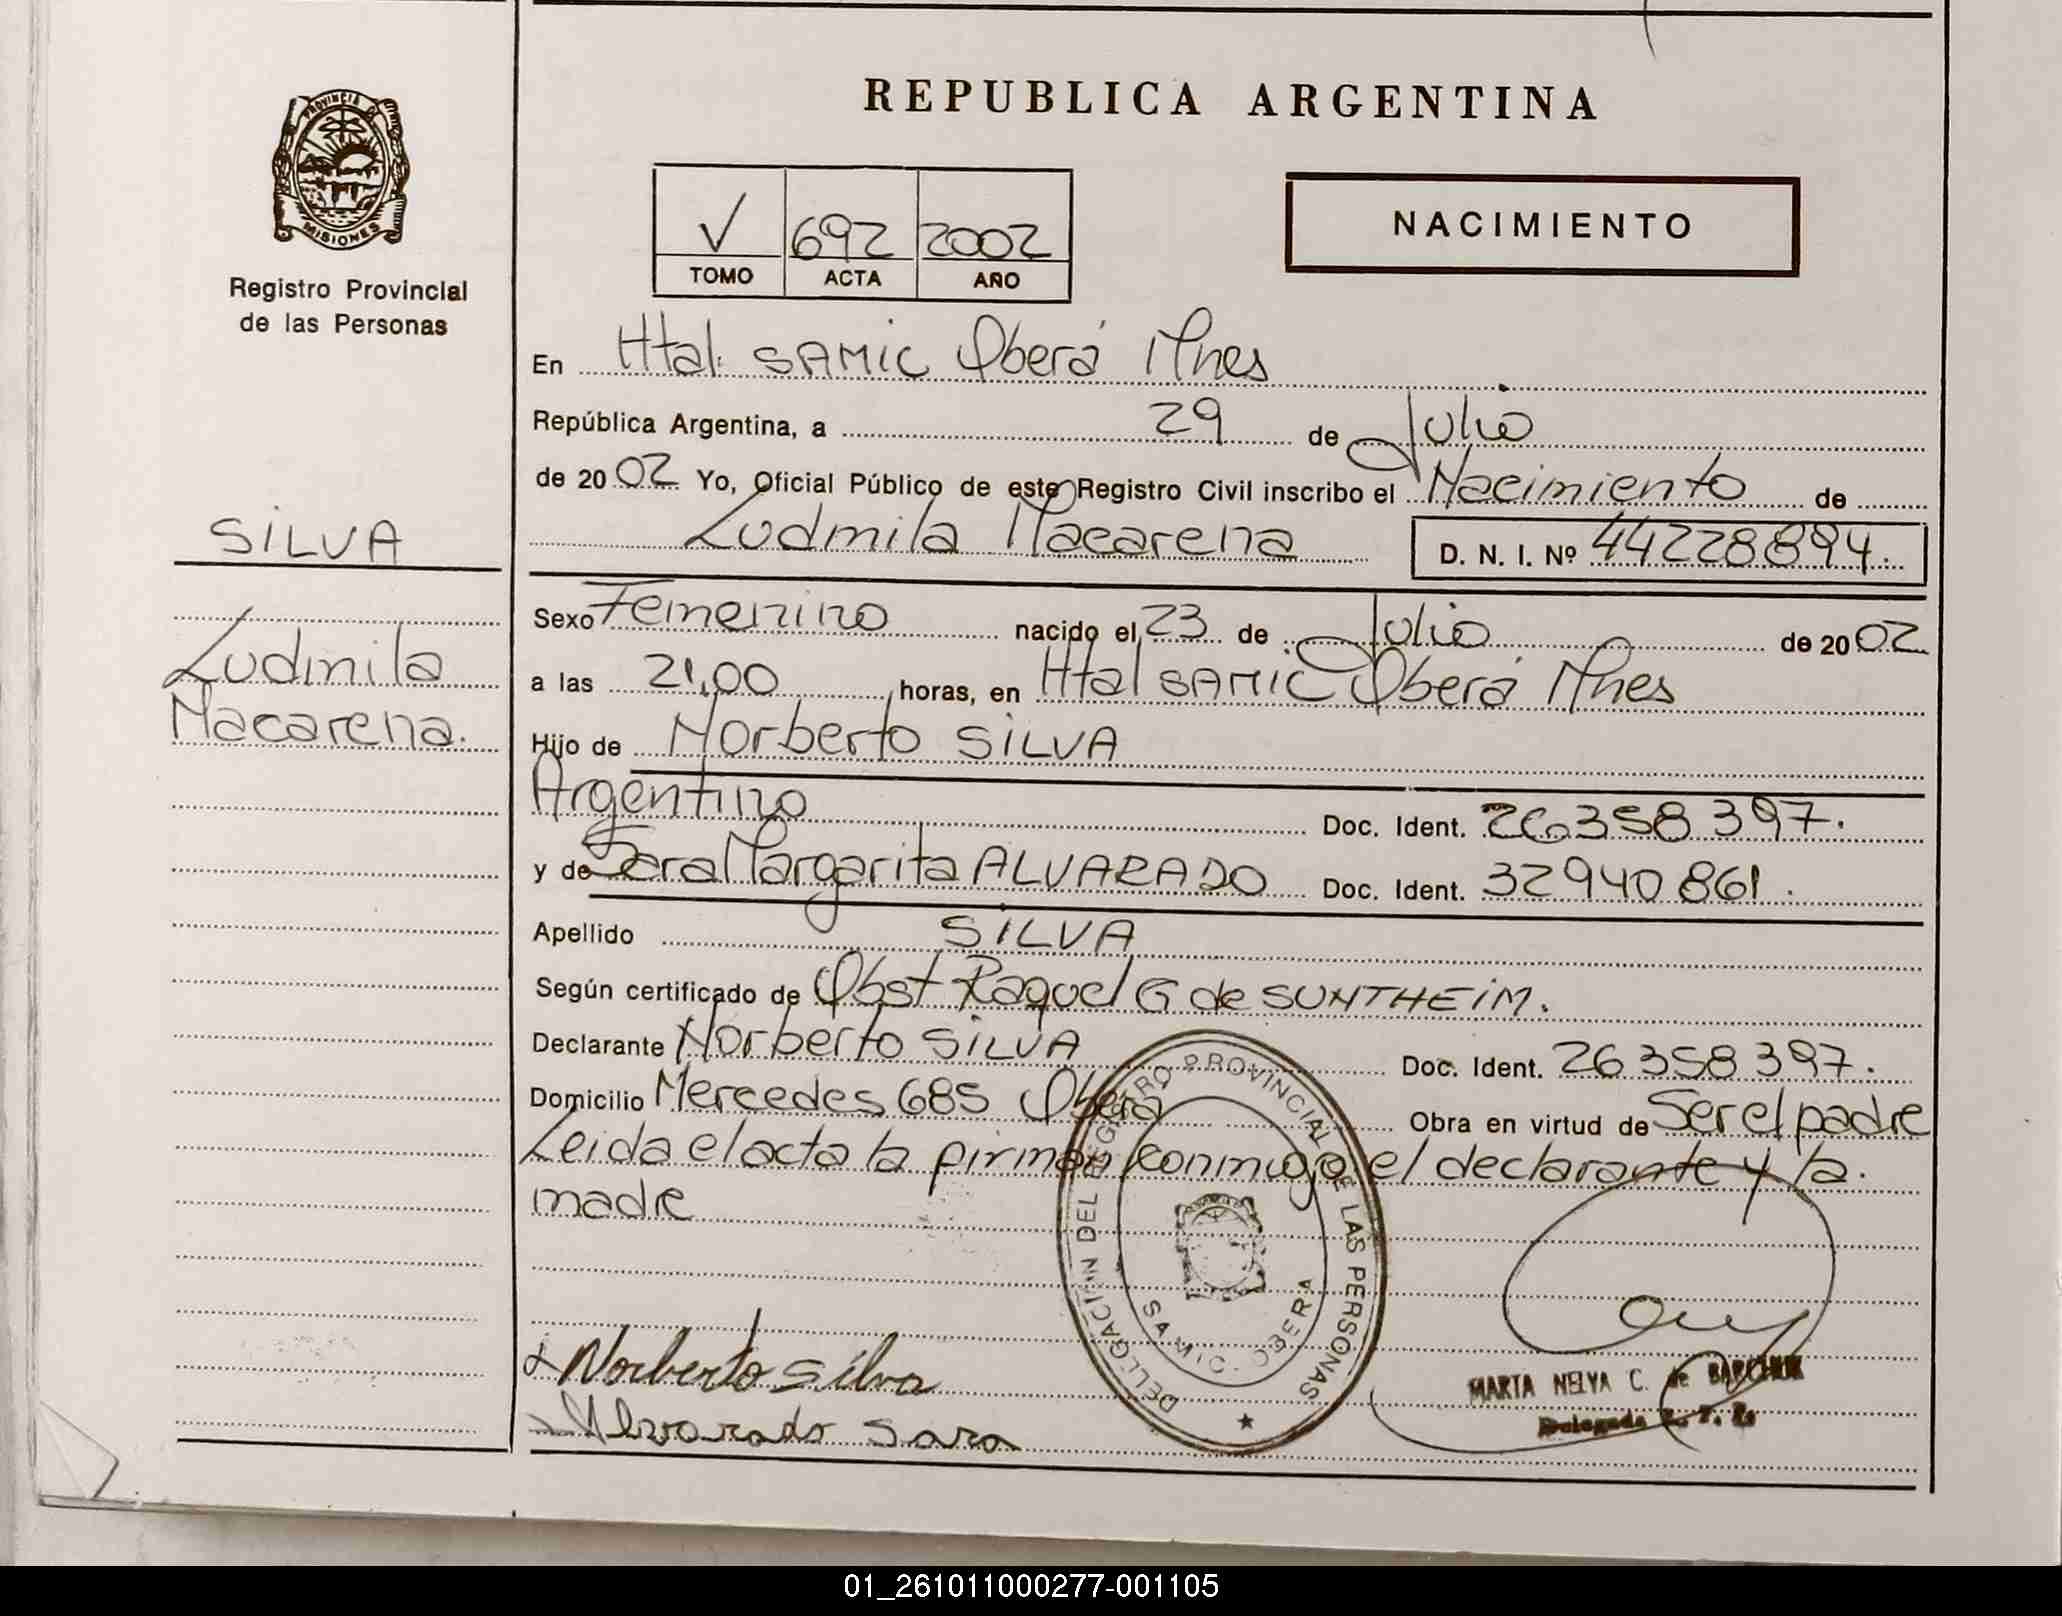 REPUBLICA ARGENTINA
PROVINCIA DE
MISIONES
Registro Provincial
de las Personas
√ 692 2002
TOMO ACTA AÑO
NACIMIENTO
En Htal. SAMIC Oberá Mnes
República Argentina, a 29 de Julio
de 2002 Yo, Oficial Público de este Registro Civil inscribo el Nacimiento de
Ludmila Macarena D. N. I. Nº 44228894.
SILVA
Ludmila
Macarena.
Sexo Femenino nacido el 23 de Julio de 2002
a las 21,00 horas, en Htal SAMIC Oberá Mnes
Hijo de Norberto SILVA
Argentino Doc. Ident. 26358397.
y de Sara Margarita ALVARADO Doc. Ident. 32940861.
Apellido SILVA
Según certificado de Obst Raquel G de SUNTHEIM.
Declarante Norberto SILVA Doc. Ident. 26358397.
Domicilio Mercedes 685 Oberá Obra en virtud de Ser el padre
Leida el acta la firman conmigo el declarante y la
madre
DELEGACION DEL REGISTRO PROVINCIAL DE LAS PERSONAS
SAMIC - OBERA
Norberto Silva
Alvarado Sara
MARTA NELVA C. de
Delegada
01_261011000277-001105